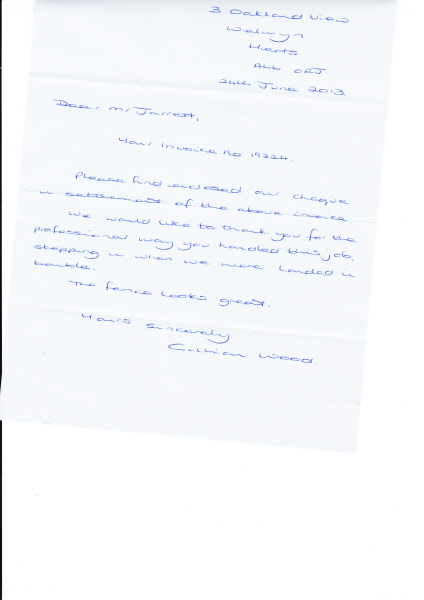 3 Oakland View
Welwyn
Herts
AL6 0RJ
24th June 2013.
Dear Mr Jarrett,
Your Invoice No 19224.
Please find enclosed our cheque
in settlement of the above invoice.
We would like to thank you for the
professional way you handled this job,
stepping in when we were landed in
trouble.
The fence looks great.
Yours sincerely
Gillian Wood.